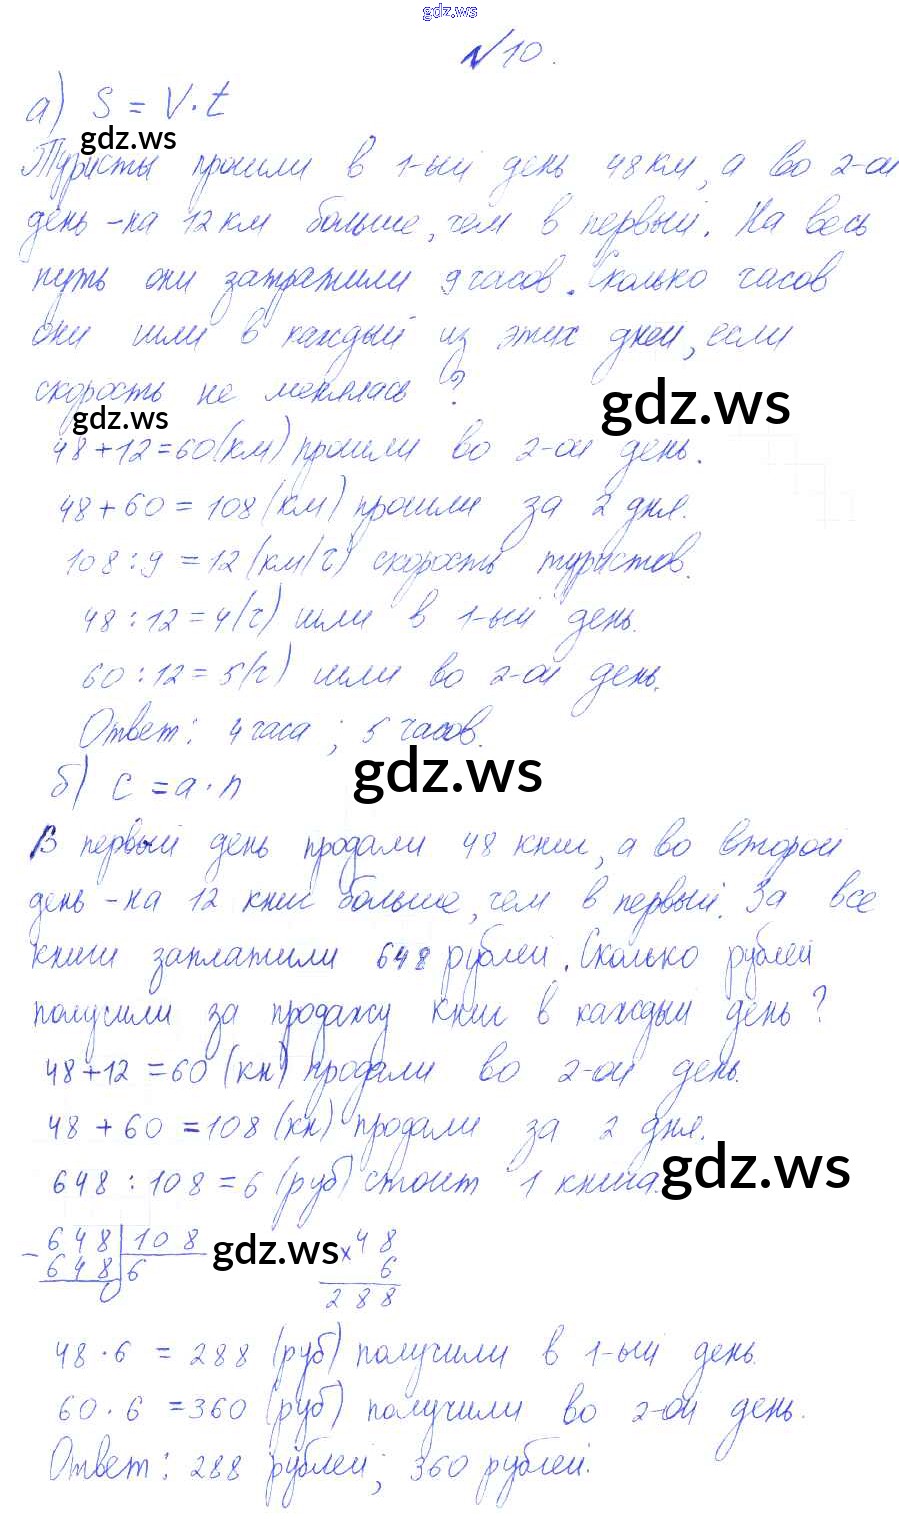 gdz.ws
№10.
а) S = V · t
gdz.ws
Туристы прошли в 1-ый день 48 км, а во 2-ой
день - на 12 км больше, чем в первый. На весь
путь они затратили 9 часов. Сколько часов
они шли в каждый из этих дней, если
скорость не менялась?
gdz.ws
gdz.ws
48 + 12 = 60 (км) прошли во 2-ой день.
48 + 60 = 108 (км) прошли за 2 дня.
108 : 9 = 12 (км/ч) скорость туристов.
48 : 12 = 4 (ч) шли в 1-ый день.
60 : 12 = 5 (ч) шли во 2-ой день.
Ответ: 4 часа ; 5 часов.
gdz.ws
б) c = a · n
В первый день продали 48 книг, а во второй
день - на 12 книг больше, чем в первый. За все
книги заплатили 648 рублей. Сколько рублей
получили за продажу книг в каждый день?
48 + 12 = 60 (кн) продали во 2-ой день.
48 + 60 = 108 (кн) продали за 2 дня.
gdz.ws
648 : 108 = 6 (руб) стоит 1 книга.
- 648 | 108 gdz.ws × 48
648 | 6 6
0 288
48 · 6 = 288 (руб) получили в 1-ый день.
60 · 6 = 360 (руб) получили во 2-ой день.
Ответ: 288 рублей; 360 рублей.